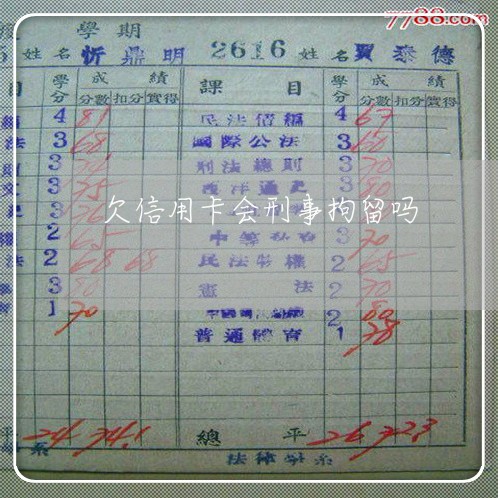 7788.com
學期
姓名 忻鼎明 2616 姓名 賈泰德
目 學分 成績 課目 學分 成績
分數 扣分 實得 分數 扣分 實得
4 81 民法債編 4 67
法 3 68 國際公法 3 60
3 刑法總則 3 70
3 75 西洋通史 3 80
欠信用卡会刑事拘留吗
2 65 3 70
法 2 68 68 民法物權 2 65
3 80 憲法 2 70
1 70 2 80
普通體育 1 78
平 24 74.1 總平 26 72.3
法律學系